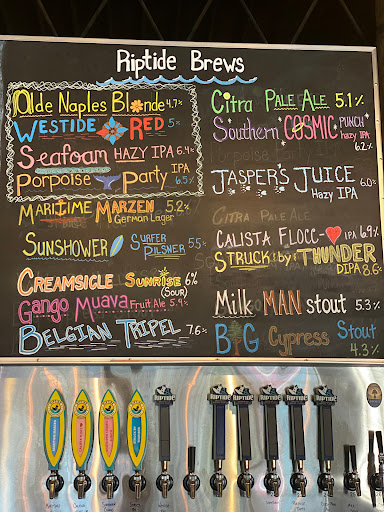 Riptide Brews
Olde Naples Blonde 4.7%
Westide Red 5%
Seafoam HAZY IPA 6.4%
Porpoise Party IPA 6.5%
MARITIME MARZEN German Lager 5.2%
Sunshower Surfer Pilsner 5.5%
Creamsicle Sunrise (Sour) 6%
Gango Muava Fruit Ale 5.9%
Belgian Tripel 7.6%
Citra Pale Ale 5.1%
Southern COSMIC PUNCH hazy IPA 6.2%
JASPER'S JUICE Hazy IPA 6.0%
CITRA PALE ALE
CALISTA FLOCC- IPA 6.9%
STRUCK!by! THUNDER DIPA 8.6%
Milk MAN stout 5.3%
BIG Cypress Stout 4.3%
RIPTIDE
RIPTIDE
RIPTIDE
RIPTIDE
RIPTIDE
RIPTIDE